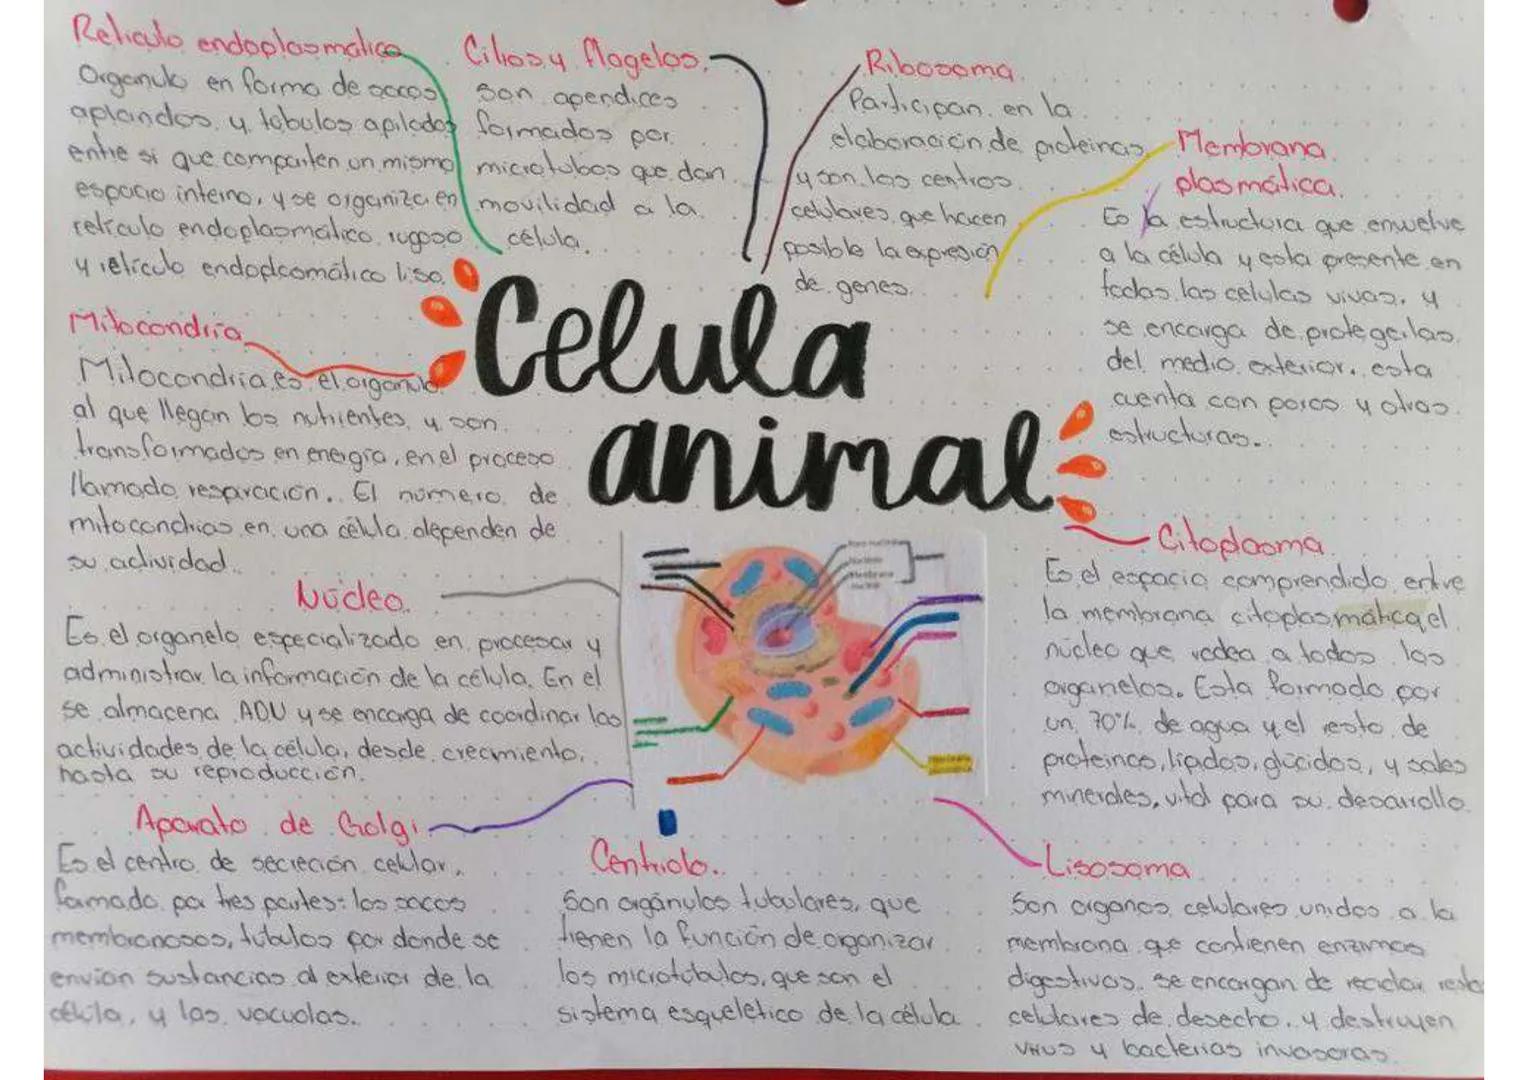 Reticulo endoplasmatico
Organulo en forma de sacos
aplandos y tubulos apilados
entre si que comparten un mismo
espacio interno, y se organiza en
retículo endoplasmatico rugoso
y retículo endoplasmático liso.
Cilios y flagelos.
Son apendices
formados por
microtubos que dan
movilidad a la
célula.
Ribosoma
Participan en la
elaboración de proteinas
y son los centros
celulares que hacen
posible la expresión
de genes.
Membrana
plasmática.
Es la estructura que envuelve
a la célula y esta presente en
todas las celulas vivas, y
se encarga de protegerlas
del medio exterior, esta
cuenta con poros y otras
estructuras.
Celula
animal
Mitocondria
Mitocondria es el organulo
al que llegan los nutrientes, y son
transformados en energía, en el proceso
llamado respiración. El número de
mitocondrias en una célula dependen de
su actividad.
Núcleo.
Es el organelo especializado en procesar y
administrar la información de la célula. En el
se almacena ADN y se encarga de coordinar las
actividades de la célula, desde crecimiento,
hasta su reproducción.
Citoplasma
Es el espacio comprendido entre
la membrana citoplasmática el
núcleo que rodea a todos los
organelos. Esta formado por
un 70% de agua y el resto de
proteinas, lípidos, glúcidos, y sales
minerales, vital para su desarrollo
Aparato de Golgi
Es el centro de secreción celular,
formado por tres partes: los sacos
membranosos, túbulos por donde se
envian sustancias al exterior de la
célula, y las vacuolas.
Centriolo.
Son orgánulos tubulares, que
tienen la función de organizar
los microtúbulos, que son el
sistema esquelético de la célula
Lisosoma
Son organos celulares unidos a la
membrana que contienen enzimas
digestivas, se encargan de reciclar restos
celulares de desecho, y destruyen
virus y bacterias invasoras.